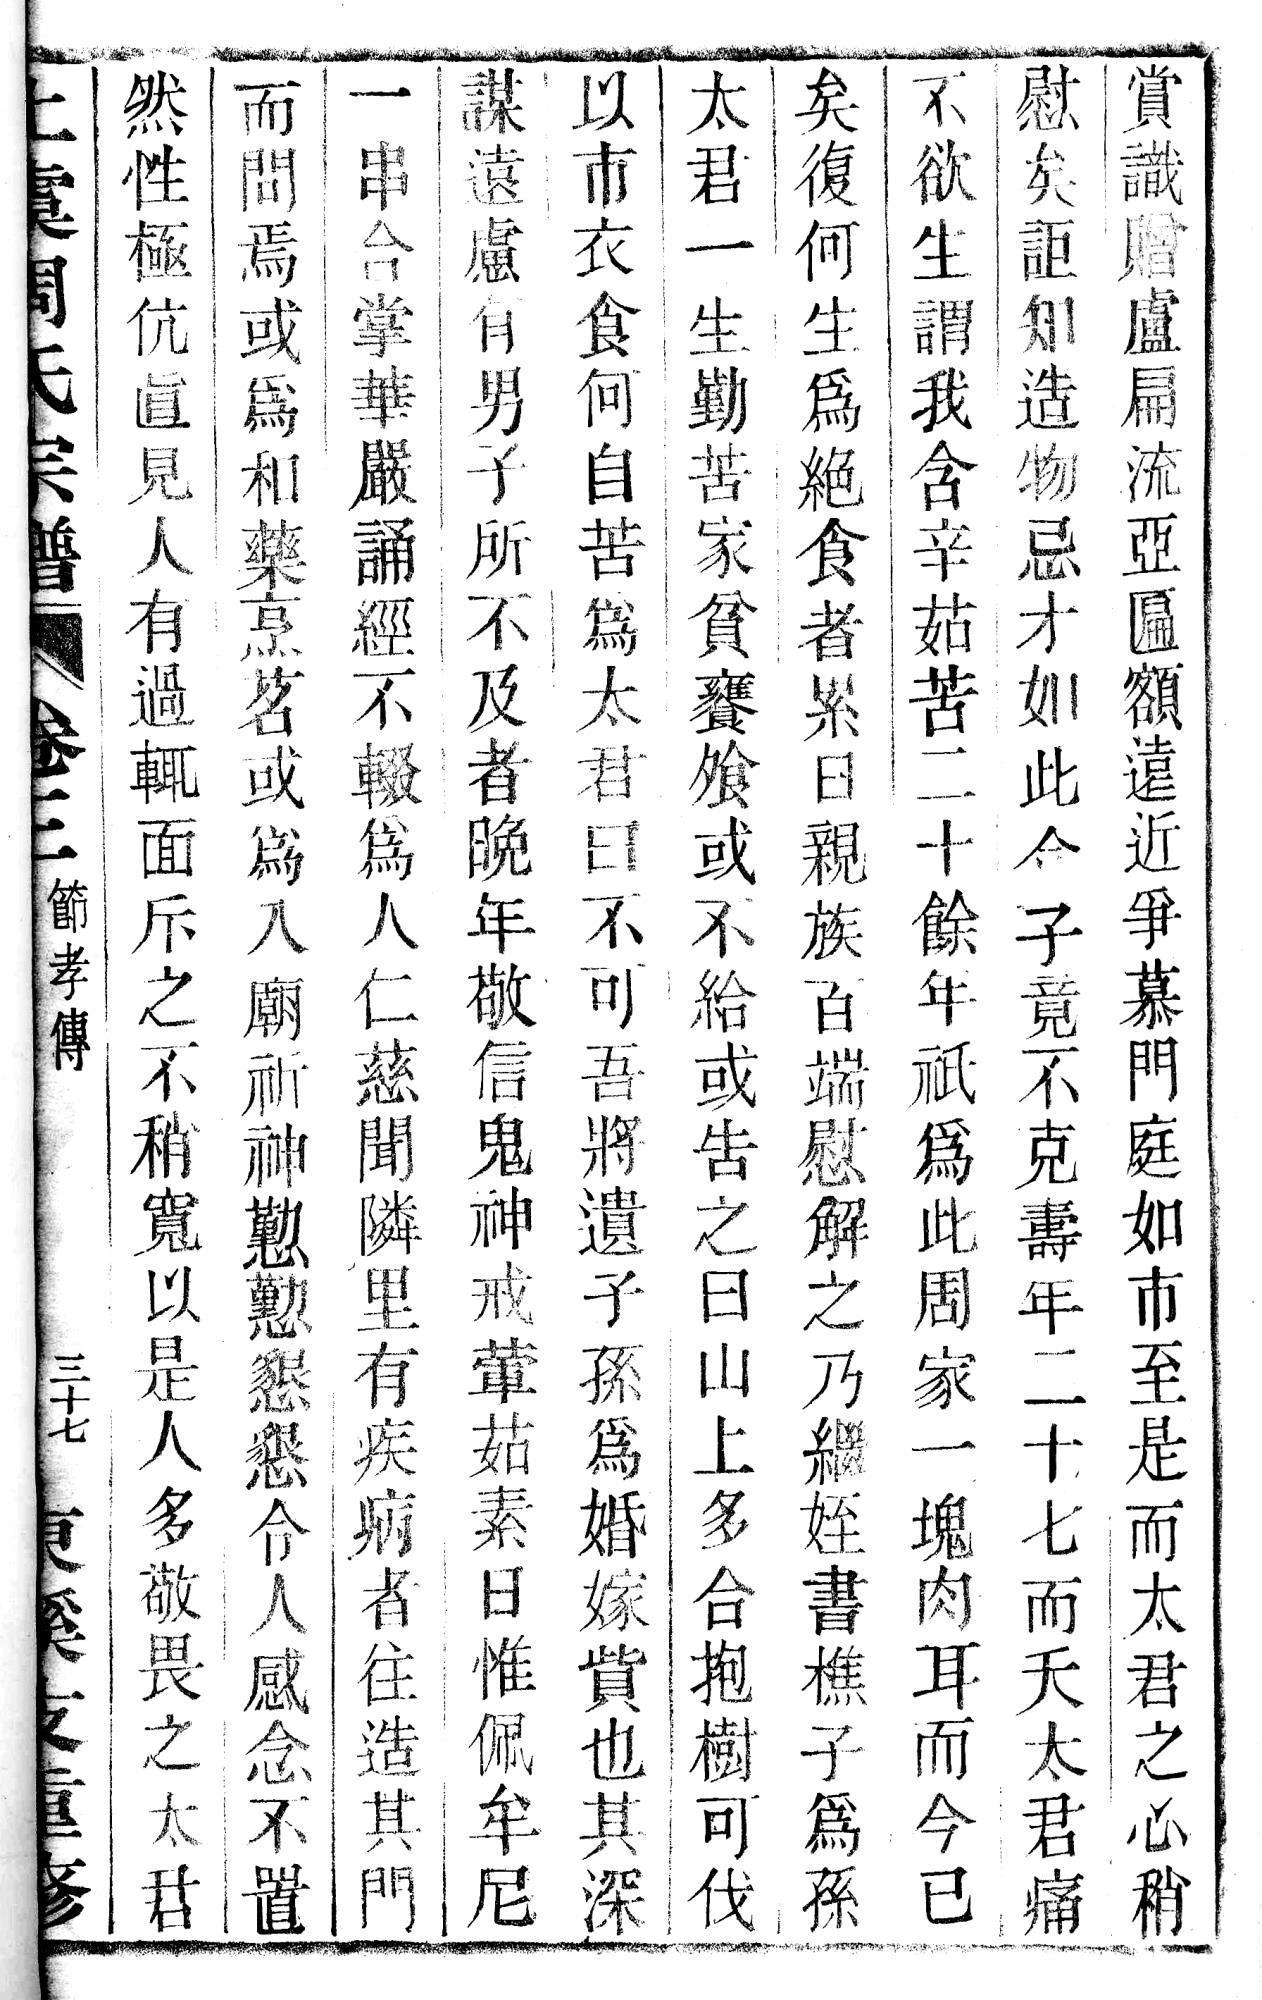 賞識贈盧扁流亞匾額遠近爭慕門庭如市至是而太君之心稍
慰矣詎知造物忌才如此令子竟不克壽年二十七而夭太君痛
不欲生謂我含辛茹苦二十餘年祇爲此周家一塊肉耳而今已
矣復何生爲絕食者累日親族百端慰解之乃繼姪書樵子爲孫
太君一生勤苦家貧饔飧或不給或告之曰山上多合抱樹可伐
以市衣食何自苦爲太君曰不可吾將遺子孫爲婚嫁貲也其深
謀遠慮有男子所不及者晚年敬信鬼神戒葷茹素日惟佩牟尼
一串合掌華嚴誦經不輟爲人仁慈聞隣里有疾病者往造其門
而問焉或爲和藥烹茗或爲入廟祈神懃懃懇懇令人感念不置
然性極伉直見人有過輒面斥之不稍寬以是人多敬畏之太君
上虞周氏宗譜 卷三 節孝傳 三十七 東溪支重修